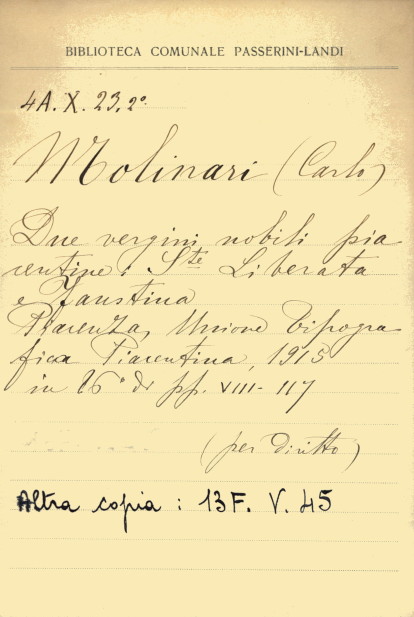 BIBLIOTECA COMUNALE PASSERINI-LANDI
4A. X. 23, 2º.
Molinari (Carlo)
Due vergini nobili pia
centine: Ste Liberata
e Faustina
Piacenza, Unione Tipogra
fica Piacentina, 1915
in 16º di pp. VIII-117
(per diritto)
Altra copia : 13 F. V. 45